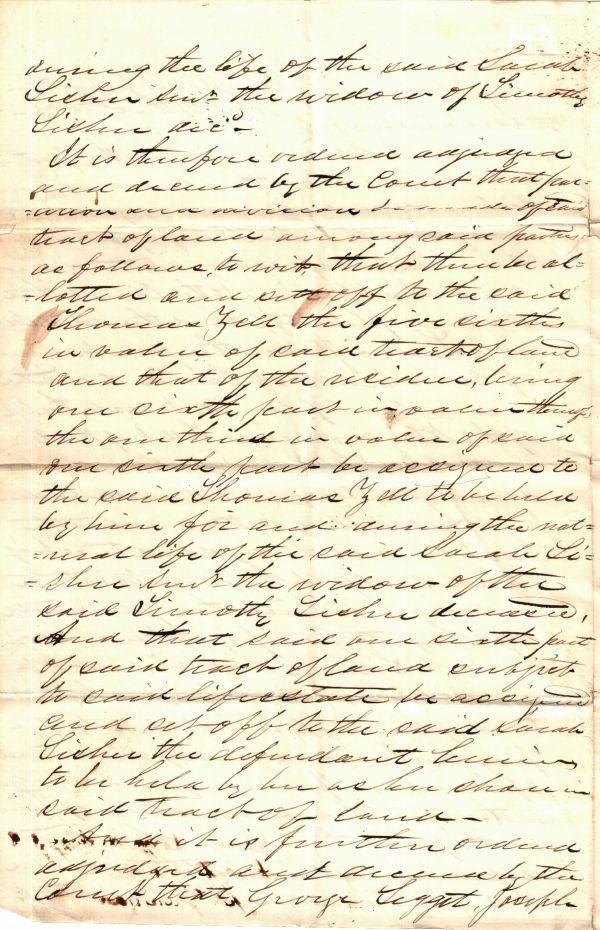 during the life of the said Sarah
Lisher Senr the widow of Timothy
Lisher decd -
It is therefore ordered adjudged
and decreed by the Court that par-
-tition and division be made of said
tract of land among said parties,
as follows, to wit that there be al-
-lotted and set off to the said
Thomas Zell the five sixths
in value of said tract of land
and that of the residue, being
one sixth part in value thereof,
the one third in value of said
one sixth part be assigned to
the said Thomas Zell to be held
by him for and during the nat-
-ural life of the said Sarah Li-
-sher Senr the widow of the
said Timothy Lisher deceased,
And that said one sixth part
of said tract of land subject
to said life estate be assigned
and set off to the said Sarah
Lisher the defendant herein,
to be held by her as her share in
said tract of land -
And it is further ordered
adjudged and decreed by the
Court that George Legget, Joseph